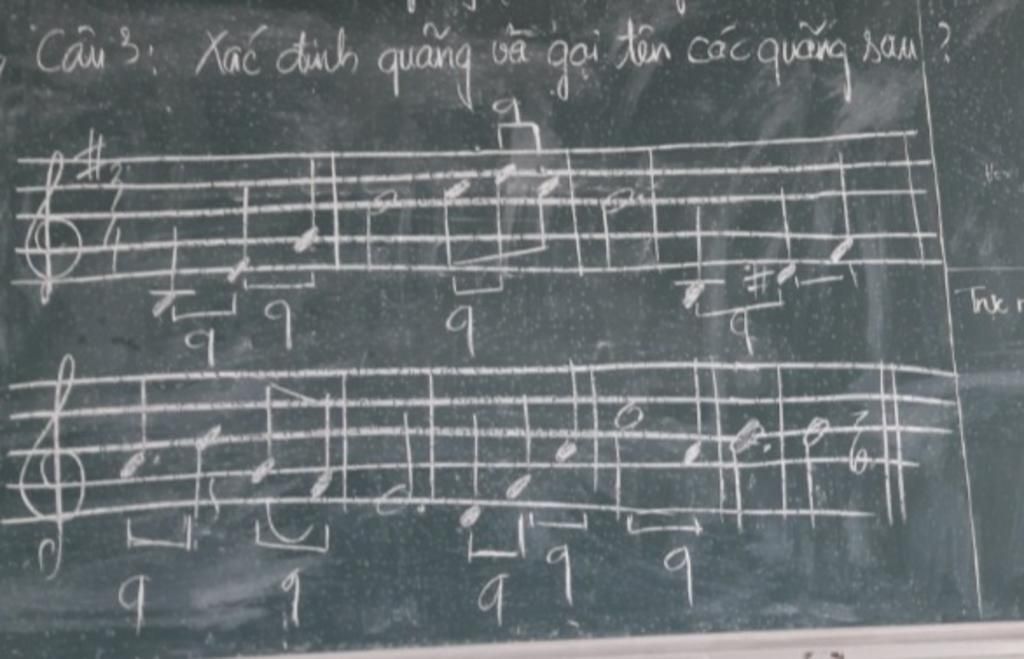 Câu 3: Xác định quãng và gọi tên các quãng sau?
q
q q q q
q q q q q